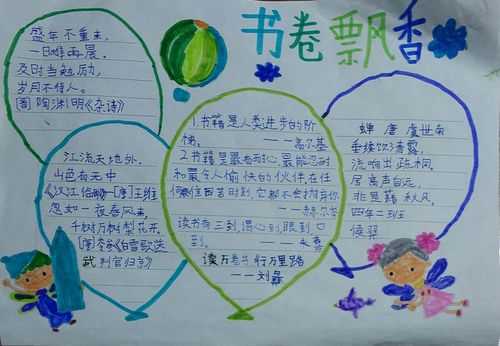 书卷飘香
盛年不重来，
一日难再晨。
及时当勉励，
岁月不待人。
陶渊明《杂诗》
江流天地外，
山色有无中
《汉江临眺》—[唐]王维
忽如一夜春风来，
千树万树梨花开。
《白雪歌送
武判官归京》
1.书籍是人类进步的阶
梯。——高尔基
2.书籍是最有耐心最能忍耐
和最令人愉快的伙伴，在任
读书有三到，谓心到眼到口
到。——朱熹
读万卷书行万里路
——刘彝
蝉 唐 虞世南
垂緌饮清露，
流响出疏桐。
居高声自远，
非是藉秋风。
四年二班